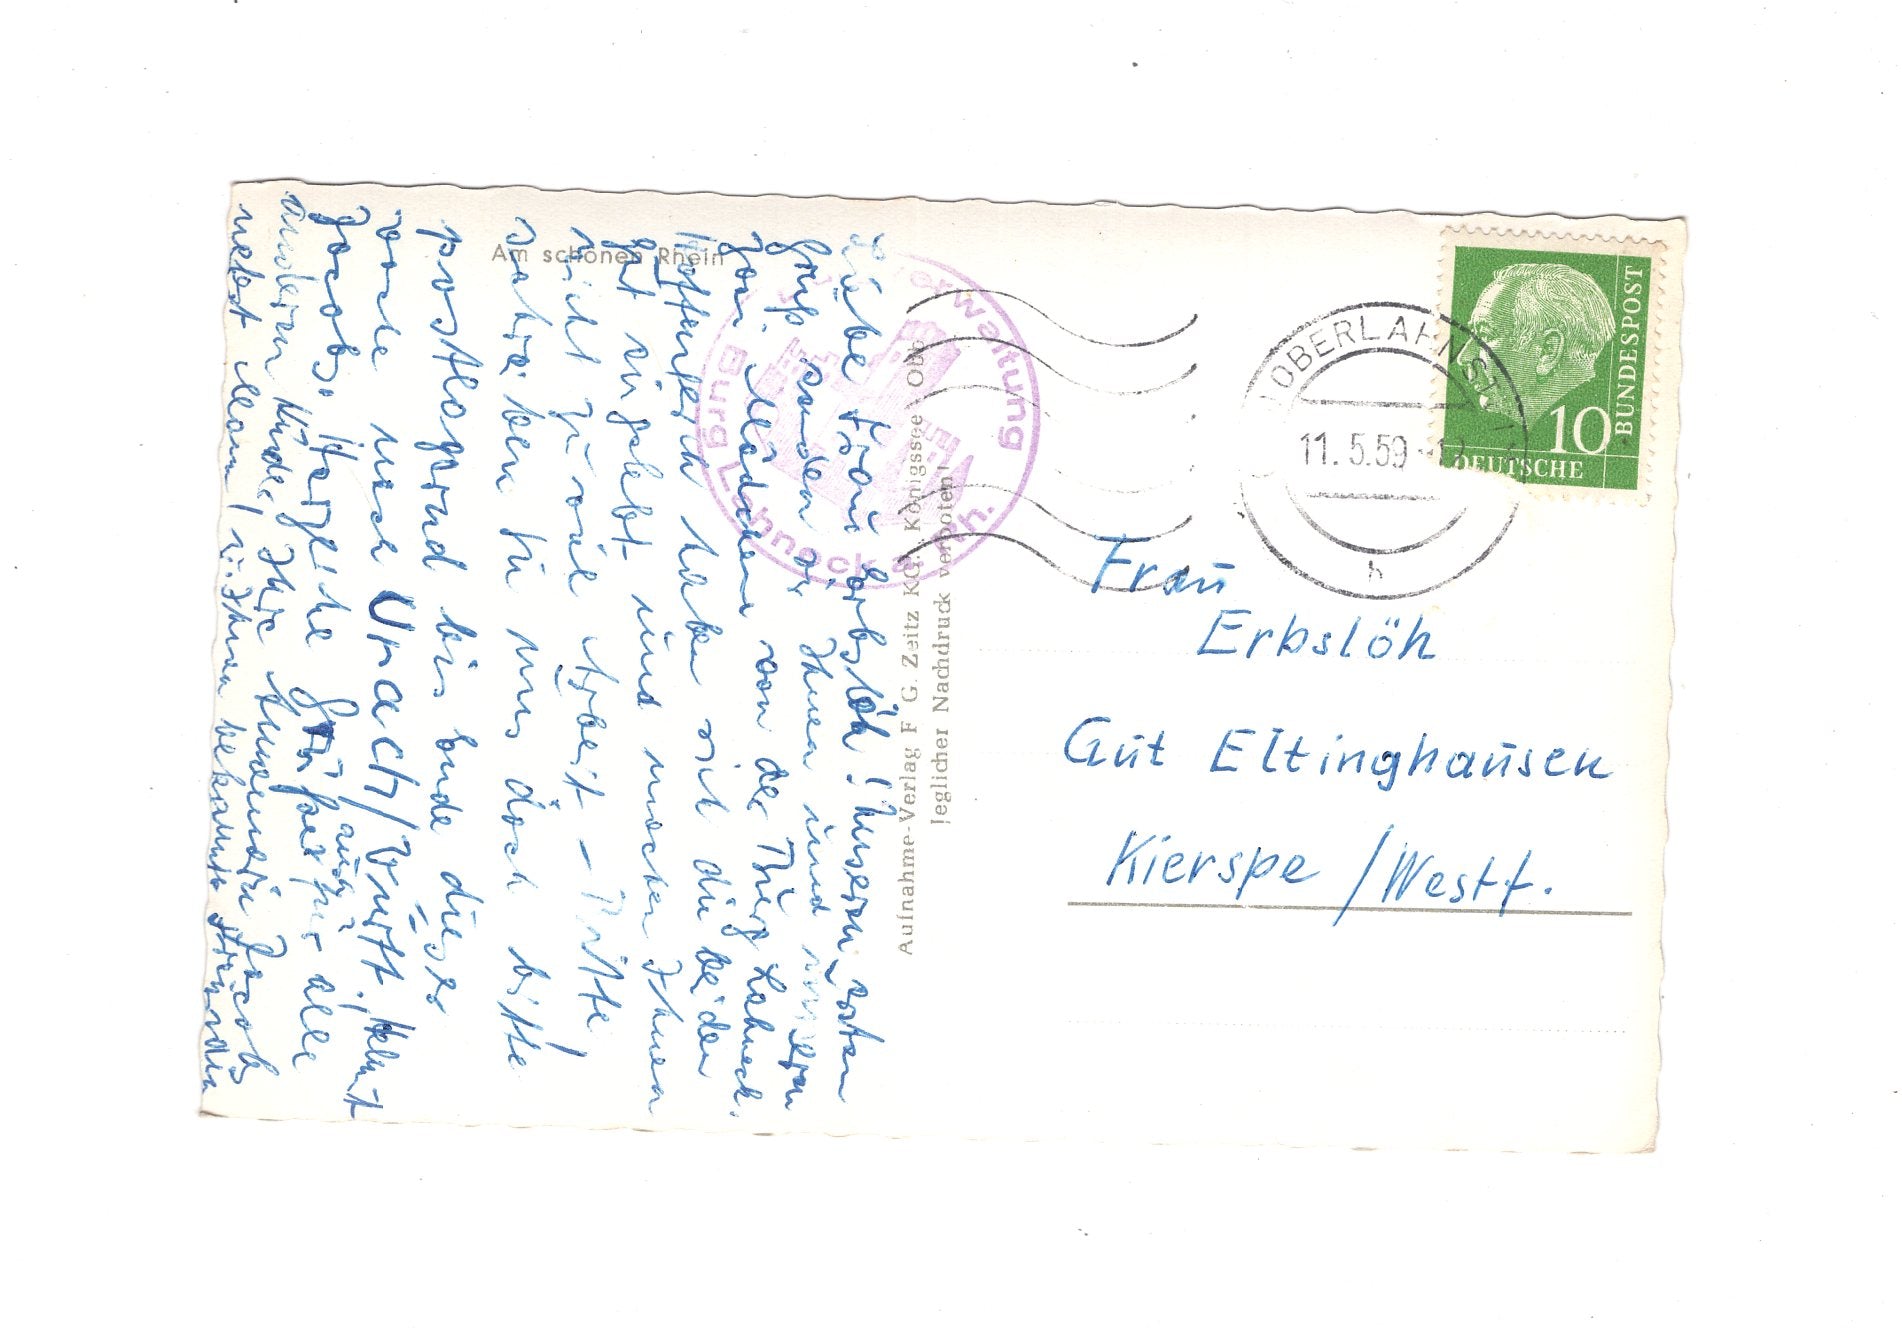 Am schönen Rhein
Liebe Frau Erbslöh! Unseren ersten
Gruß senden wir Ihnen und unseren
zwei Mädchen von der Burg Lahneck.
Hoffentlich haben sich die beiden
gut eingelebt und machen Ihnen
nicht zu viel Arbeit – Bitte!
schreiben Sie uns doch bitte
postlagernd bis Ende dieser
Woche nach Urach/Württ.
Jacobs Herzliche Grüße auch
anderen Kinder, Ihre Annemarie Jacobs
nebst Mann
Burgverwaltung
Burg Lahneck a. Rh.
Aufnahme-Verlag F. G. Zeitz KG., Königssee Obb.
Jeglicher Nachdruck verboten!
OBERLAHNSTEIN
11.5.59
h
10
DEUTSCHE
BUNDESPOST
Frau
Erbslöh
Gut Eltinghausen
Kierspe /Westf.